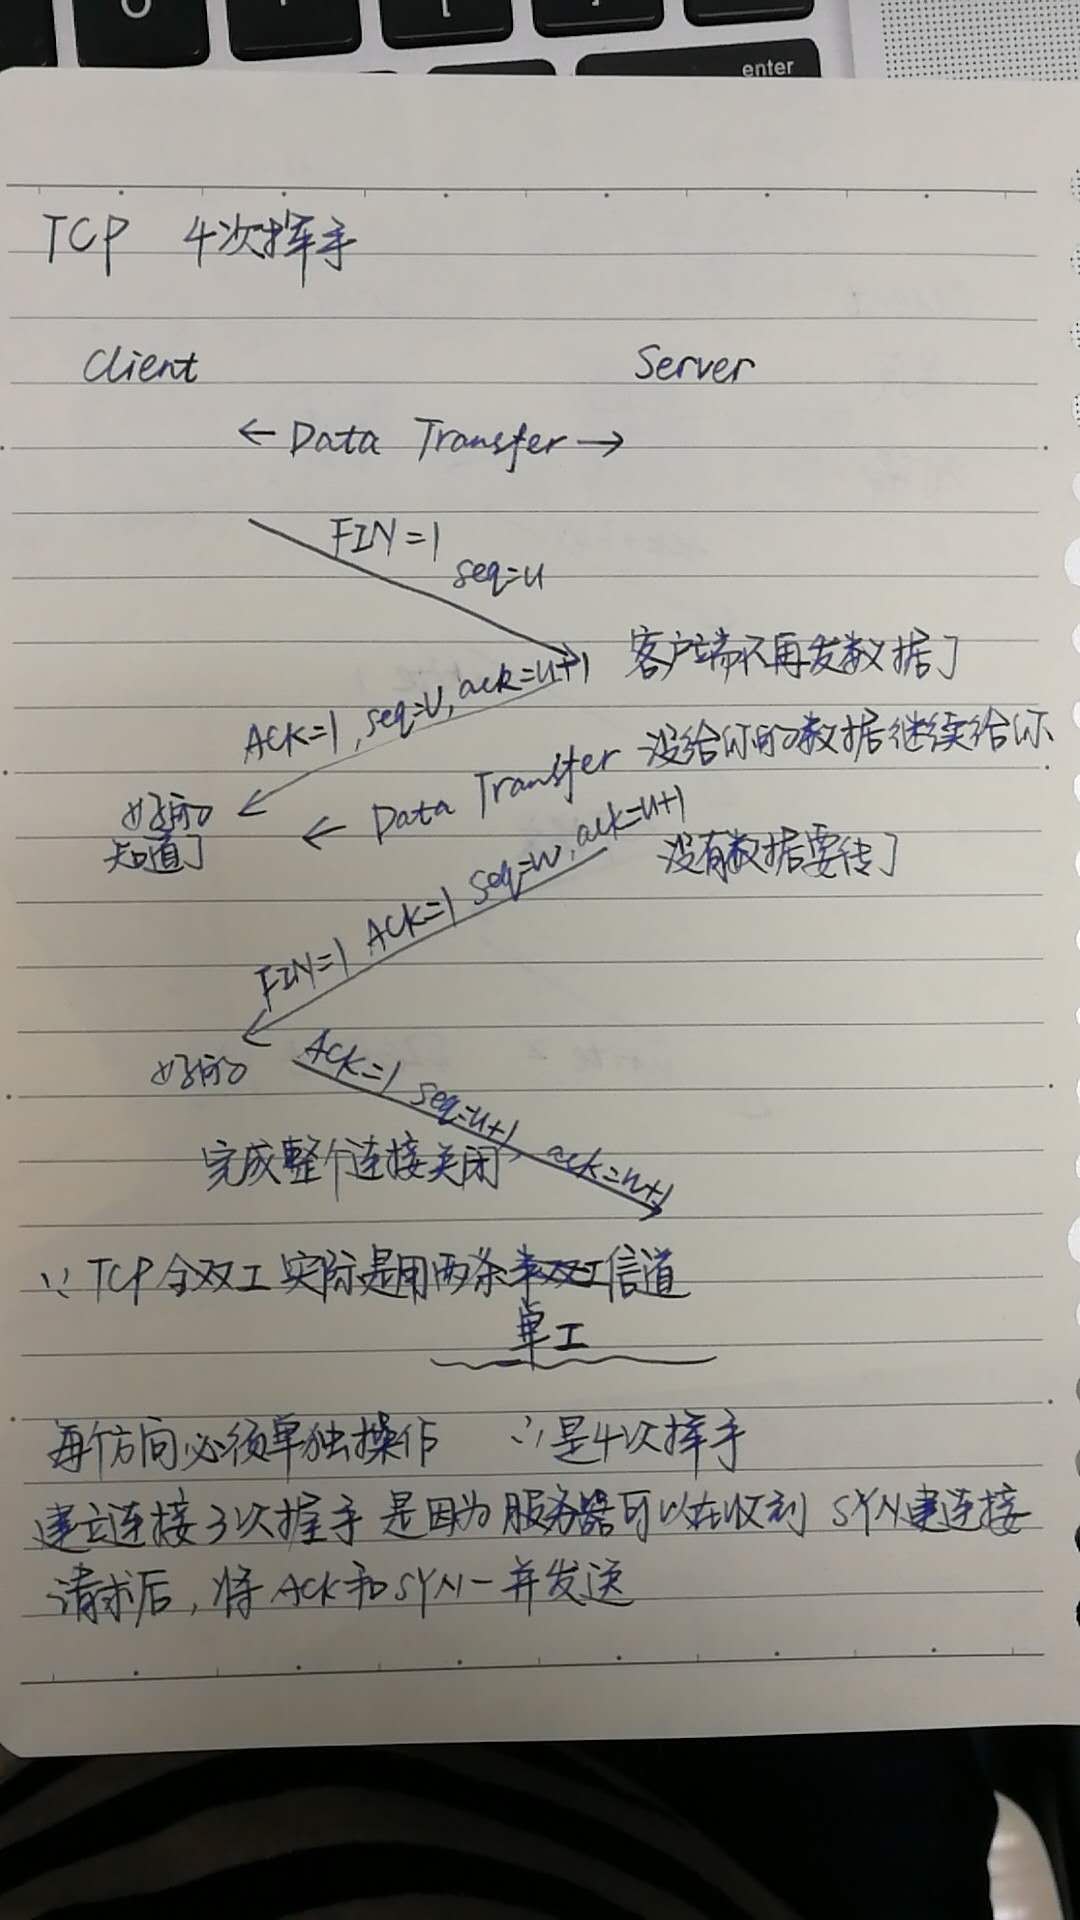 enter
TCP 4次挥手
Client Server
← Data Transfer →
FIN=1
seq=u
客户端不再发数据了
ACK=1, seq=v, ack=u+1
没给你的数据继续给你
← Data Transfer
好的
知道了
没有数据要传了
FIN=1 ACK=1 seq=w, ack=u+1
好的
ACK=1 seq=u+1 ack=w+1
完成整个连接关闭
∵ TCP全双工实际是用两条半双工信道
单工
每个方向必须单独操作 ∴是4次挥手
建立连接3次握手是因为服务器可以在收到SYN建连接
请求后,将ACK和SYN一并发送